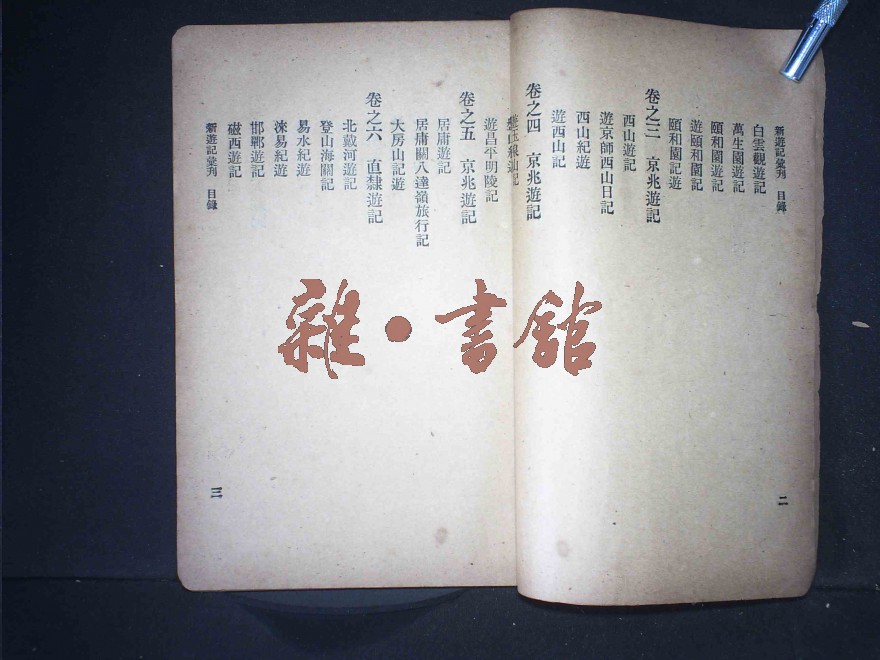 新遊記彙刋　目錄
白雲觀遊記
萬生園遊記
頤和園遊記
遊頤和園記
頤和園記遊
卷之三　京兆遊記
西山遊記
遊京師西山日記
西山紀遊
遊西山記
卷之四　京兆遊記
二
遊昌平明陵記
卷之五　京兆遊記
居庸遊記
居庸關八達嶺旅行記
大房山記遊
卷之六　直隸遊記
北戴河遊記
登山海關記
易水紀遊
淶易紀遊
邯鄲遊記
磁西遊記
新遊記彙刋　目錄
三
雜・書館